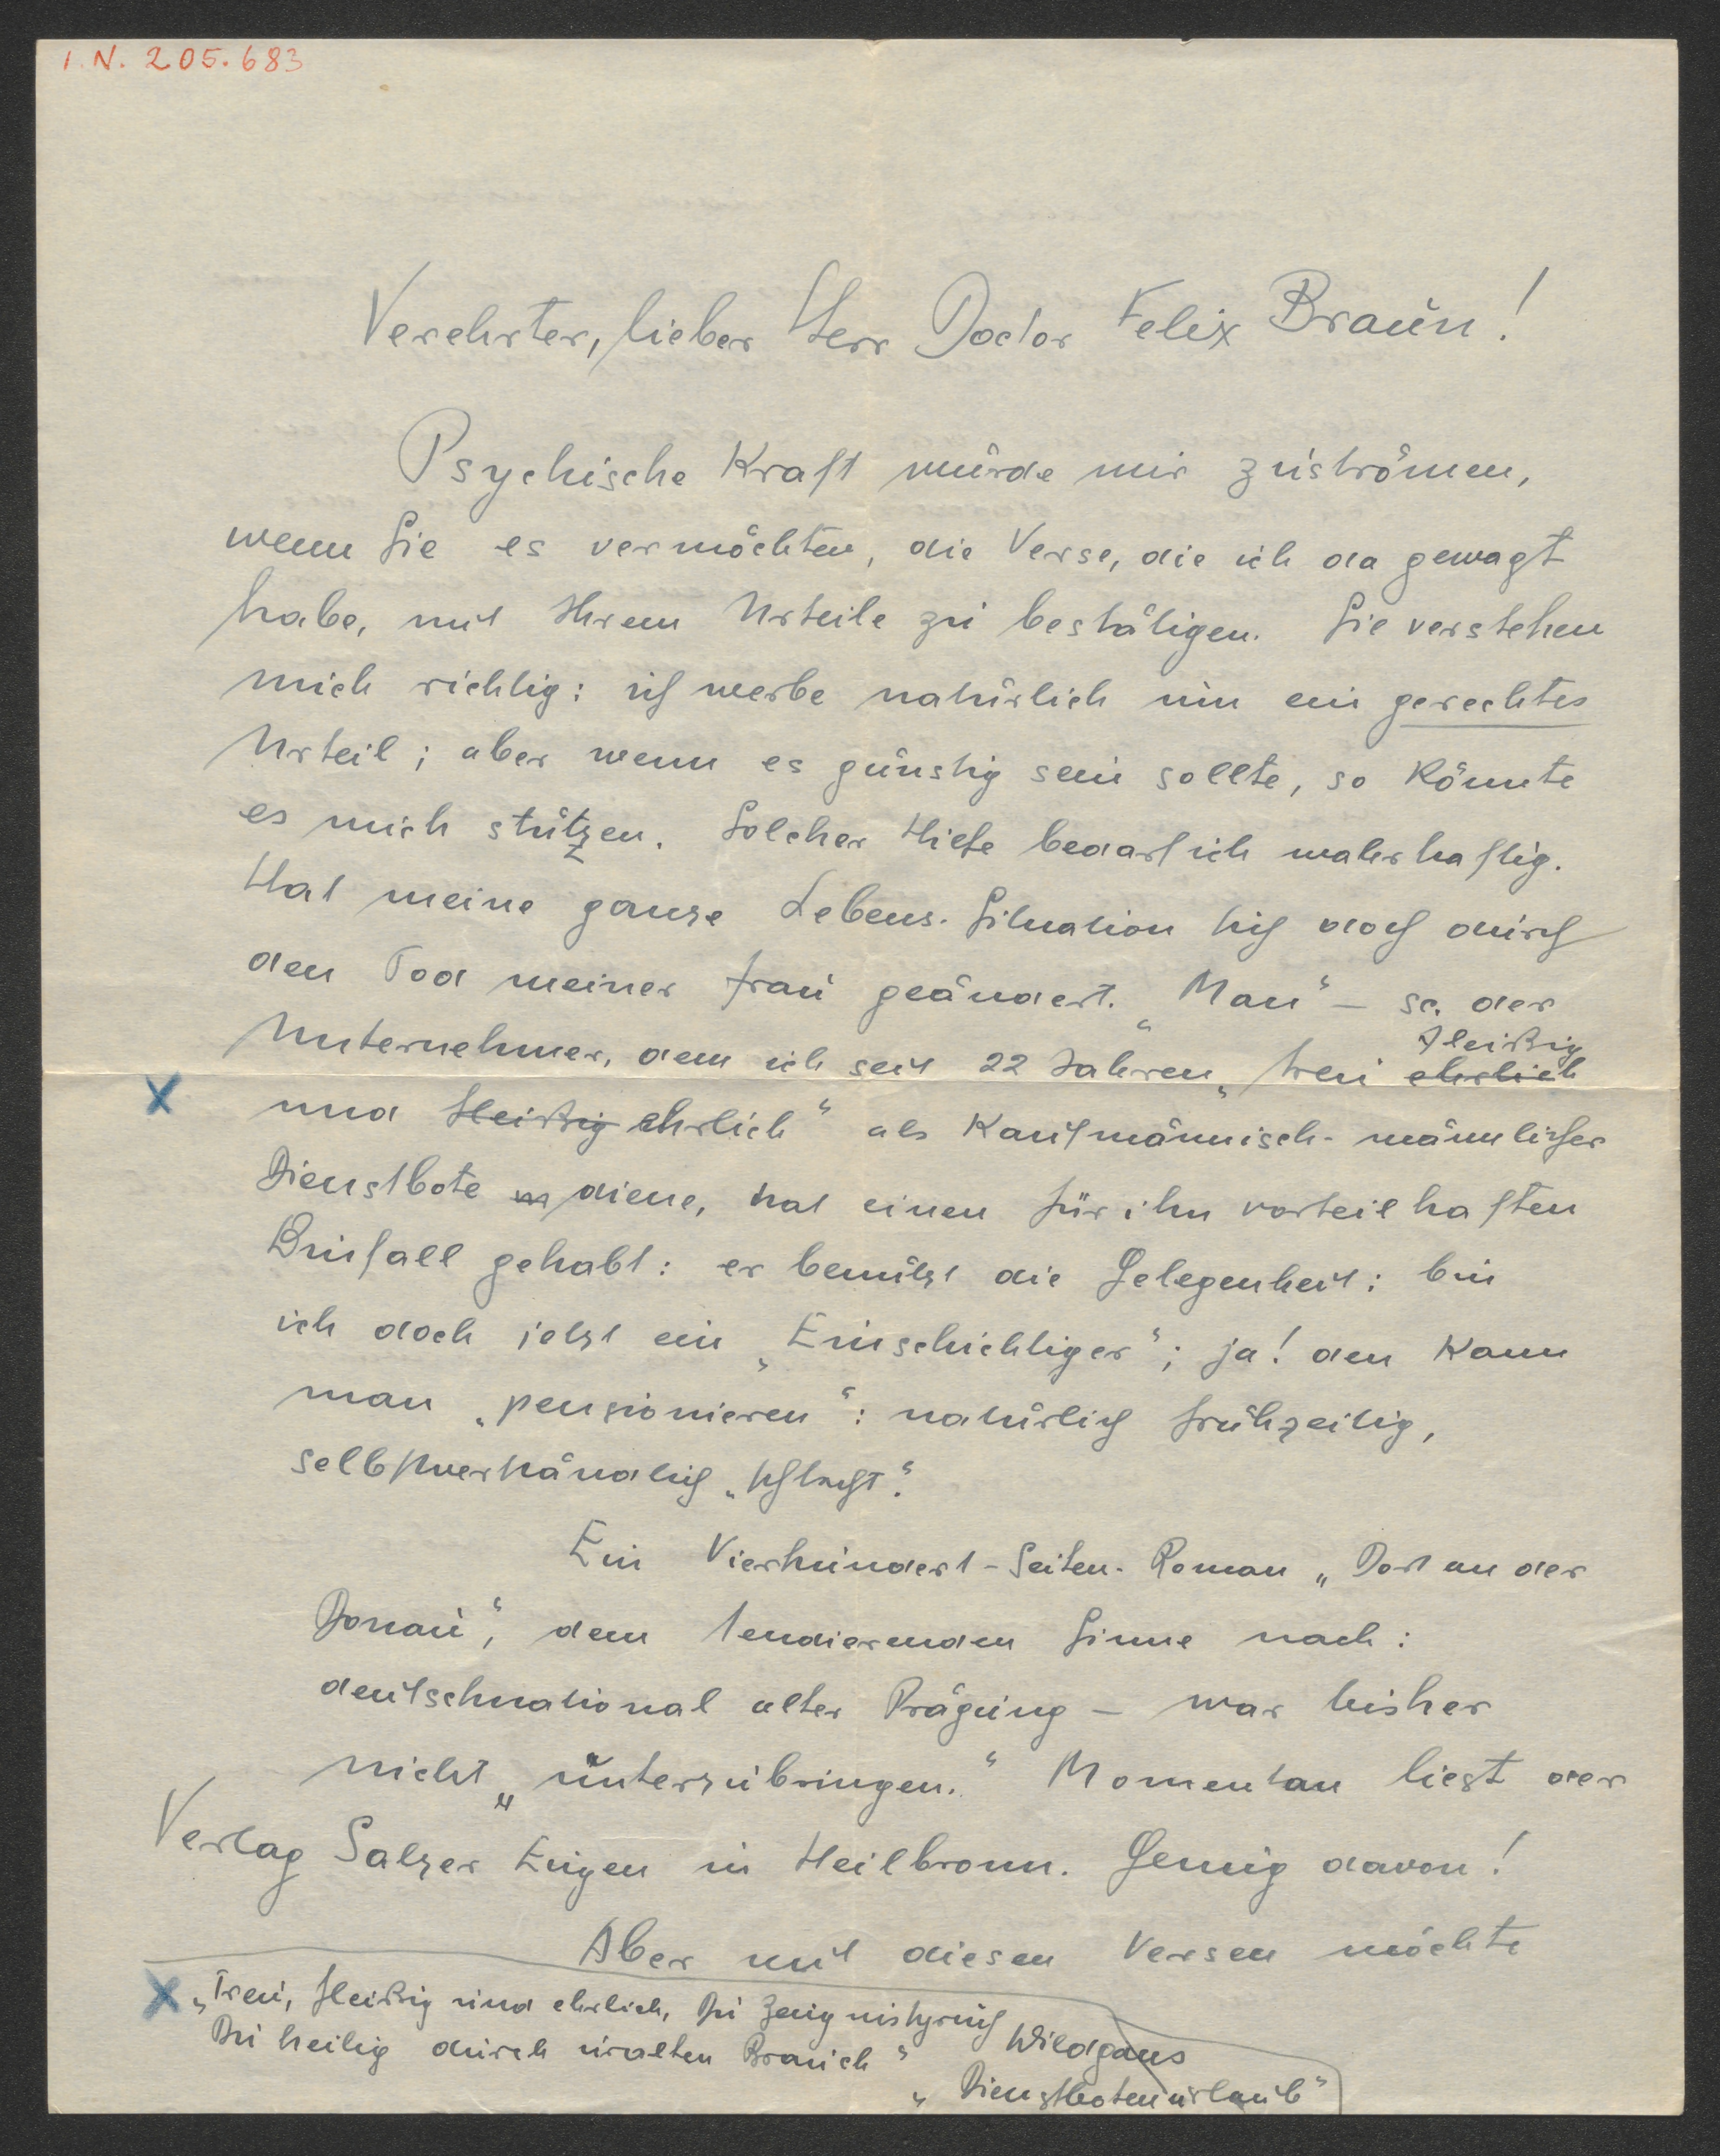 I. N. 205.683
Verehrter, lieber Herr Doctor Felix Braun!
Psychische Kraft würde mir zuströmen,
wenn Sie es vermöchten, die Verse, die ich da gewagt
habe, mit Ihrem Urteile zu bestätigen. Sie verstehen
mich richtig: ich werbe natürlich um ein gerechtes
Urteil; aber wenn es günstig sein sollte, so könnte
es mich stützen. Solcher Hilfe bedarf ich wahrhaftig.
Hat meine ganze Lebens-Situation sich doch durch
den Tod meiner Frau geändert. „Man“ – sc. der
Unternehmer, dem ich seit 22 Jahren „treu ehrlich fleißig
und fleißig ehrlich“ als kaufmännisch-männlicher
Dienstbote diene, hat einen für ihn vorteilhaften
Einfall gehabt: er benützt die Gelegenheit: bin
ich doch jetzt ein „Einschichtiger“; ja! den kann
man „pensionieren“: natürlich frühzeitig,
selbstverständlich „schlecht“.
Ein Vierhundert-Seiten-Roman „Dorf an der
Donau“, dem tendierenden Sinne nach:
deutschnational alter Prägung – war bisher
nicht „unterzubringen.“ Momentan liest der
Verlag Salzer Eugen in Heilbronn. Genug davon!
Aber mit diesen Versen möchte
X „Treu, fleißig und ehrlich, Du Zeugnisspruch
Du heilig durch uralten Brauch“ Wildgans
„Dienstbotenurlaub“